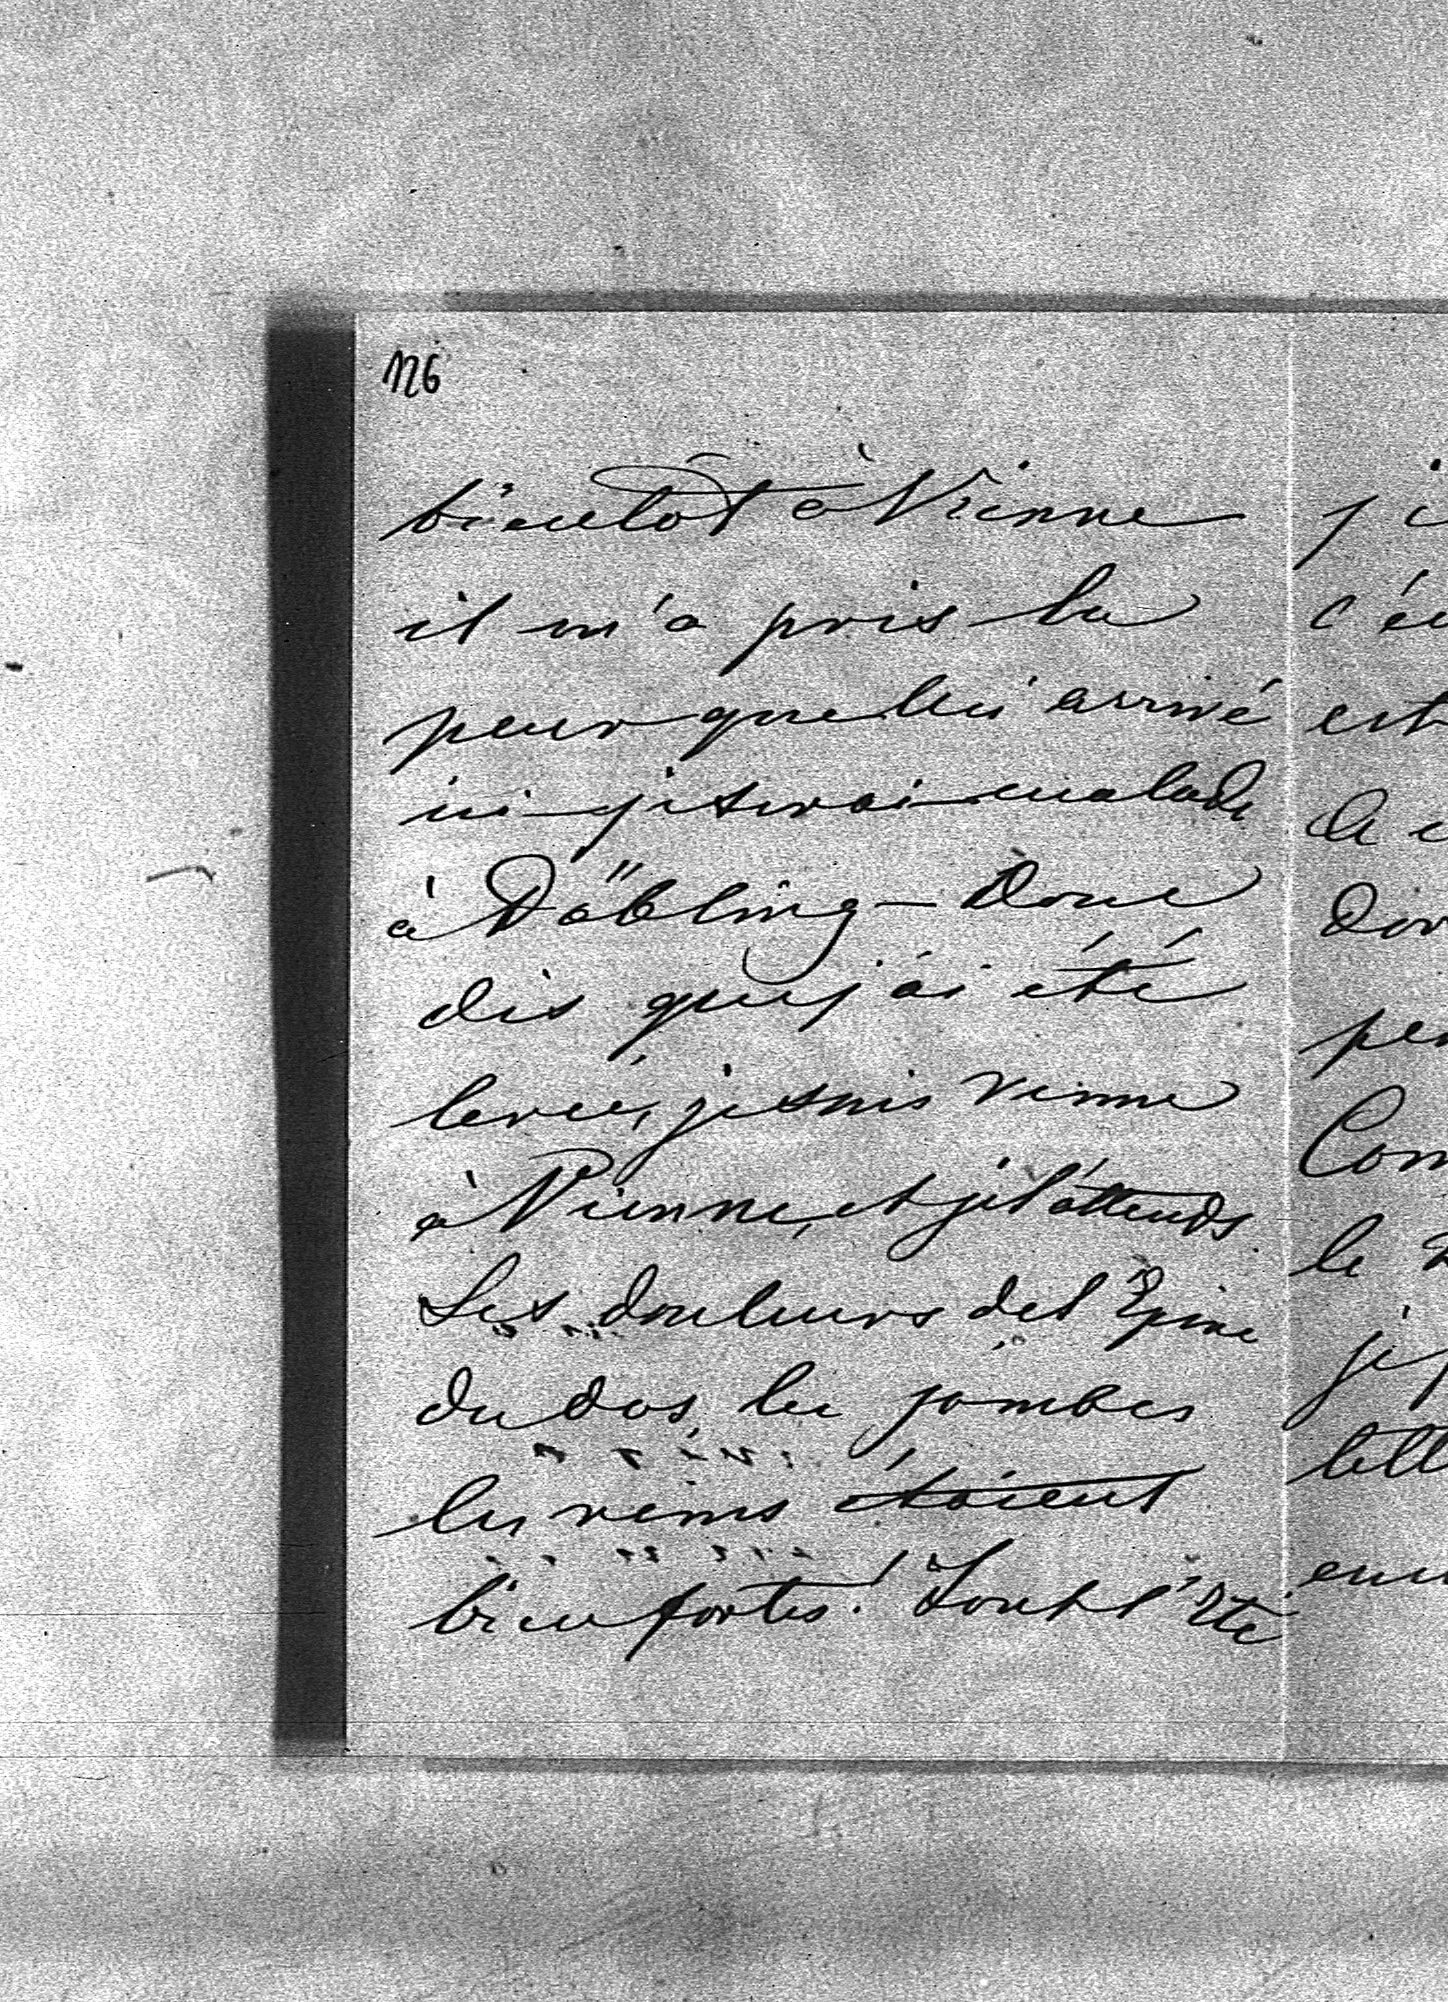 126
bientôt à Vienne
il m'a pris la
peur que lui arrivé
ici je serai malade
à Döbling – Donc
dès que j'ai été
levée, je suis venue
à Vienne, et je l'attends.
Les douleurs de l'Epine
du dos, les jambes
les reins étaient
bien fortes! Tout l'Eté